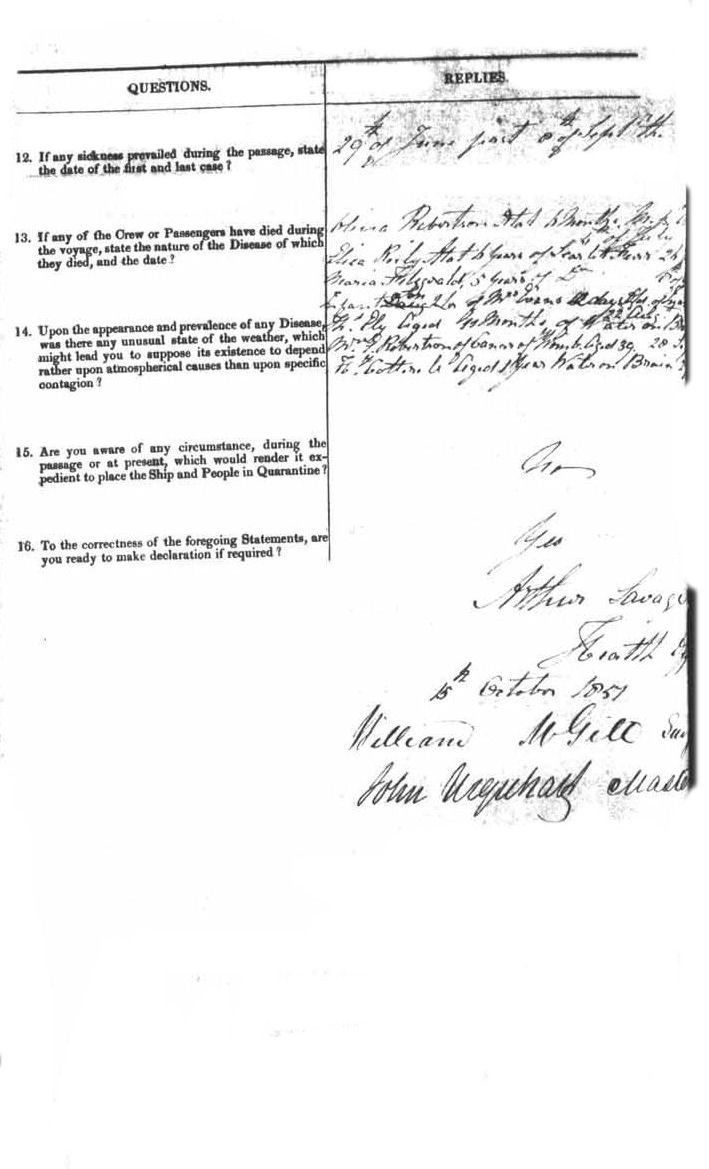 QUESTIONS.
REPLIES.
12. If any sickness prevailed during the passage, state
the date of the first and last case?
29th of June past 8th of Sept
13. If any of the Crew or Passengers have died during
the voyage, state the nature of the Disease of which
they died, and the date?
Robertson 6 Months
Eliza 4 years of
Maria Fitzgerald 5 years of Do
Infant of Mrs Evans days
14. Upon the appearance and prevalence of any Disease,
was there any unusual state of the weather, which
might lead you to suppose its existence to depend
rather upon atmospherical causes than upon specific
contagion?
Ely Aged Months of Water on
Robertson of Cancer of Womb Aged 39 28
Aged 1 Year Water on Brain
15. Are you aware of any circumstance, during the
passage or at present, which would render it ex-
pedient to place the Ship and People in Quarantine?
No
16. To the correctness of the foregoing Statements, are
you ready to make declaration if required?
Yes
Arthur Savage
Health
15th October 1857
William McGill
John Urquhart Master